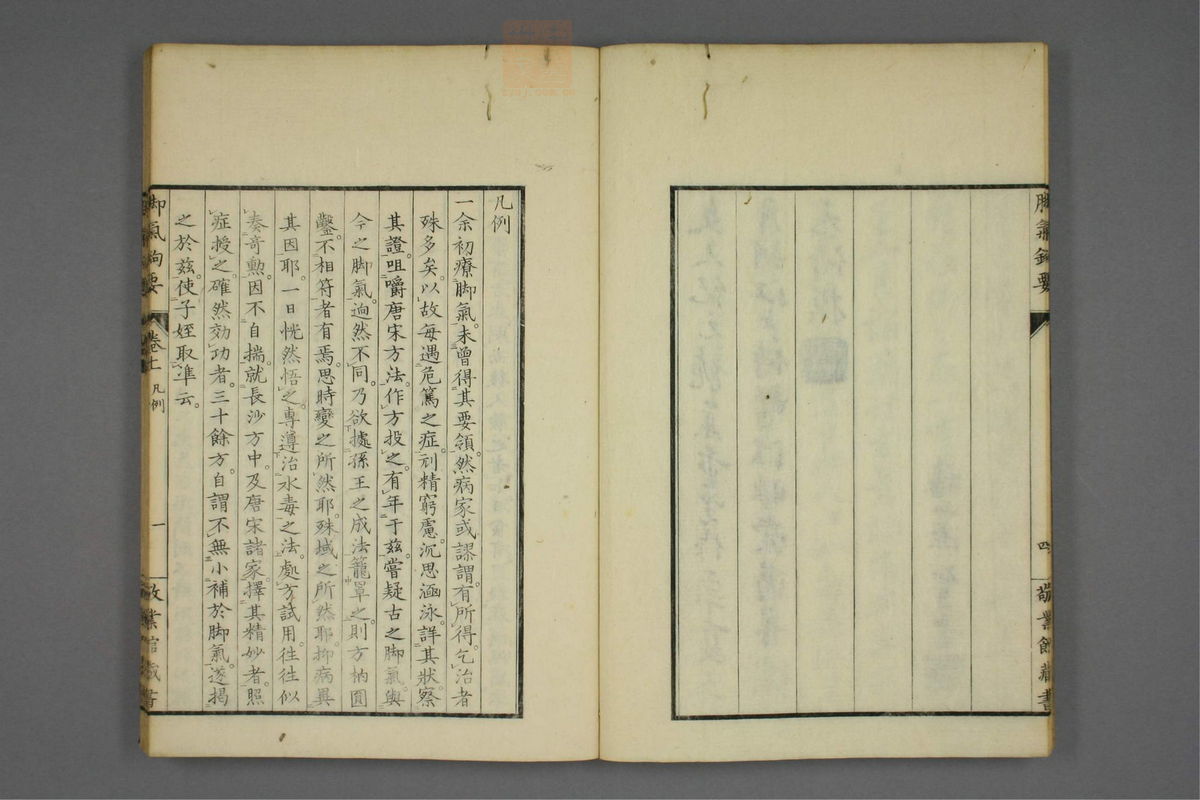 脚氣鉤要
四
敬業館藏書
凡例
一余初療脚氣。未曾得其要領。然病家或謬謂有所得。乞治者
殊多矣。以故每遇危篤之症。刓精窮慮。沉思涵泳。詳其狀察
其證。咀嚼唐宋方法。作方投之。有年于茲。嘗疑古之脚氣與
今之脚氣。逈然不同。乃欲據孫王之成法籠罩之。則方枘圓
鑿。不相符者有焉。思時變之所然耶。殊域之所然耶。抑病異
其因耶。一日恍然悟之。專遵治水毒之法。處方試用。往往似
奏奇勳。因不自揣。就長沙方中。及唐宋諸家。擇其精妙者。照
症授之。確然効功者。三十餘方。自謂不無小補於脚氣。遂揭
之於茲。使子姪取準云。
脚氣鉤要
卷上 凡例
一
敬業館藏書